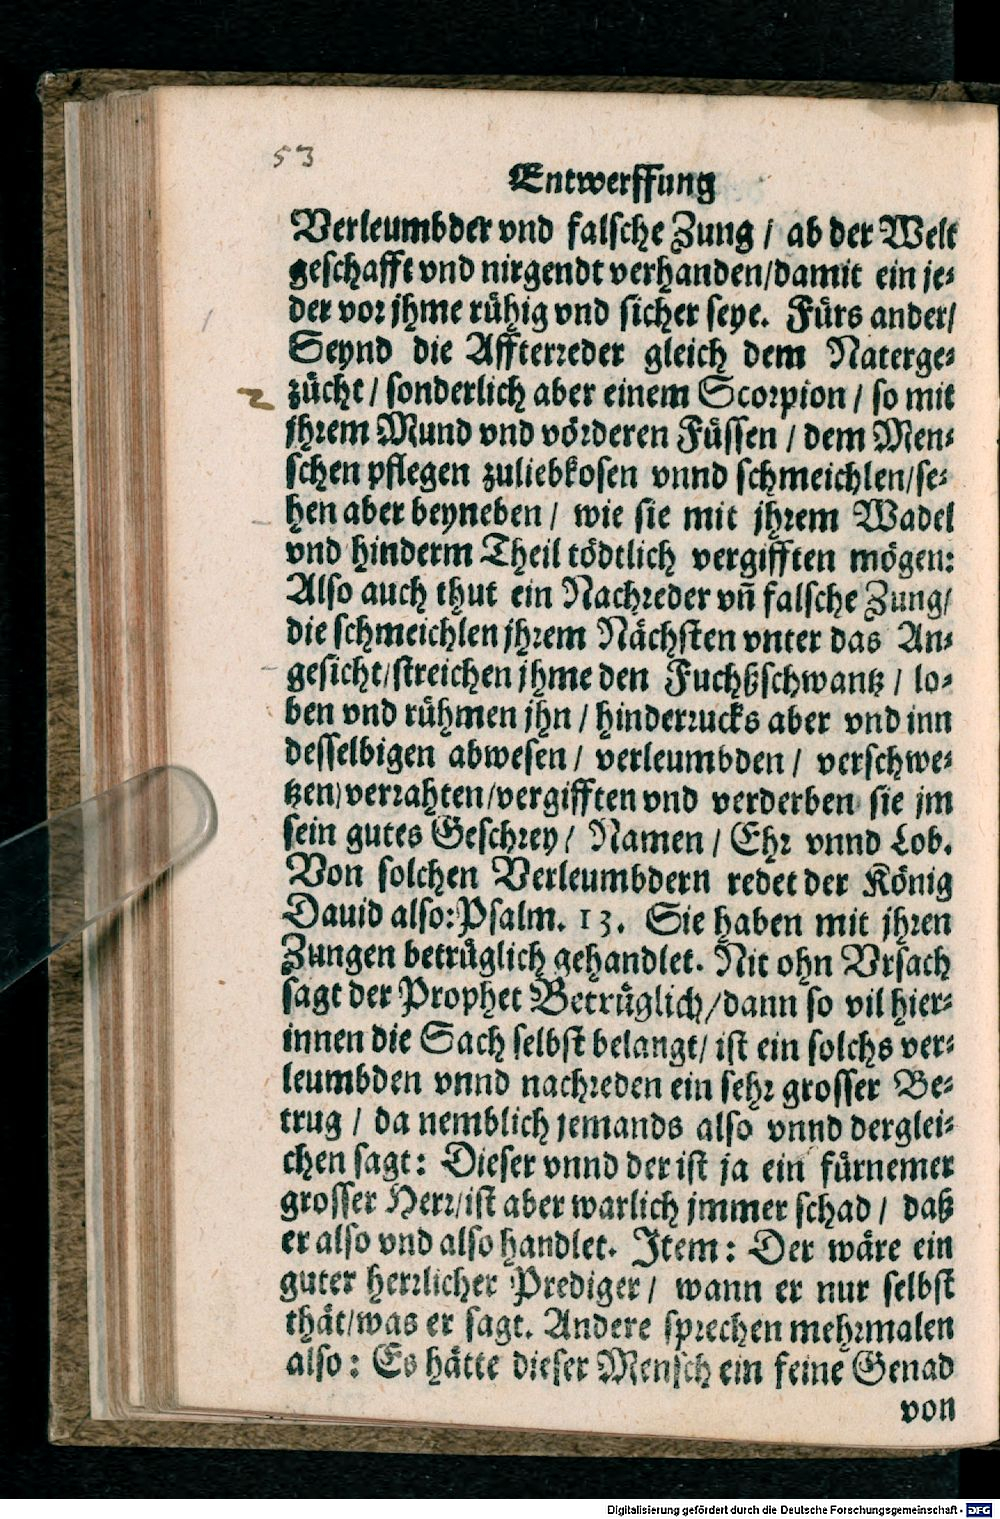 53
Entwerffung
Verleumbder vnd falsche Zung / ab der Welt
geschafft vnd nirgendt verhanden/damit ein je-
der vor jhme rühig vnd sicher seye. Fürs ander/
Seynd die Affterreder gleich dem Naterge-
2 zücht / sonderlich aber einem Scorpion / so mit
jhrem Mund vnd vörderen Füssen / dem Men-
schen pflegen zuliebkosen vnnd schmeichlen/se-
hen aber beyneben / wie sie mit jhrem Wadel
vnd hinderm Theil tödtlich vergifften mögen:
Also auch thut ein Nachreder vñ falsche Zung/
die schmeichlen jhrem Nächsten vnter das An-
gesicht/streichen jhme den Fuchßschwantz / lo-
ben vnd rühmen jhn / hinderrucks aber vnd inn
desselbigen abwesen / verleumbden / verschwe-
tzen/verrahten/vergifften vnd verderben sie jm
sein gutes Geschrey / Namen / Ehr vnnd Lob.
Von solchen Verleumbdern redet der König
Dauid also: Psalm. 13. Sie haben mit jhren
Zungen betrüglich gehandlet. Nit ohn Vrsach
sagt der Prophet Betrüglich/dann so vil hier-
innen die Sach selbst belangt/ ist ein solchs ver-
leumbden vnnd nachreden ein sehr grosser Be-
trug / da nemblich jemands also vnnd derglei-
chen sagt: Dieser vnnd der ist ja ein fürnemer
grosser Herr/ist aber warlich jmmer schad / daß
er also vnd also handlet. Item: Der wäre ein
guter herrlicher Prediger / wann er nur selbst
thät/was er sagt. Andere sprechen mehrmalen
also: Es hätte dieser Mensch ein feine Genad
von
Digitalisierung gefördert durch die Deutsche Forschungsgemeinschaft - DFG